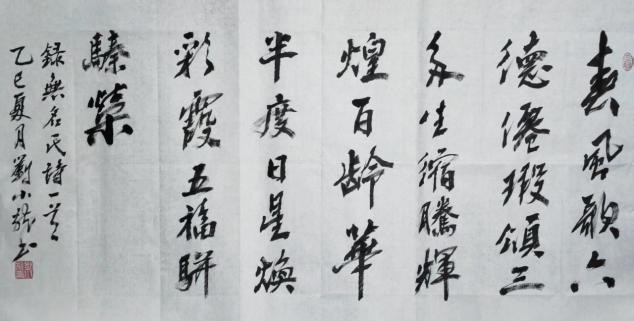 春風歌六
德優瑕頌三
多生縮騰輝
煌百齡華
半度日星煥
彩霞五福駢
臻榮
録無名氏詩一首
乙巳夏月劉小強书